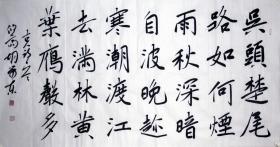 吳頭楚尾
路如何煙
雨秋深暗
白波晚趁
寒潮渡江
去滿林黃
葉鴈聲多